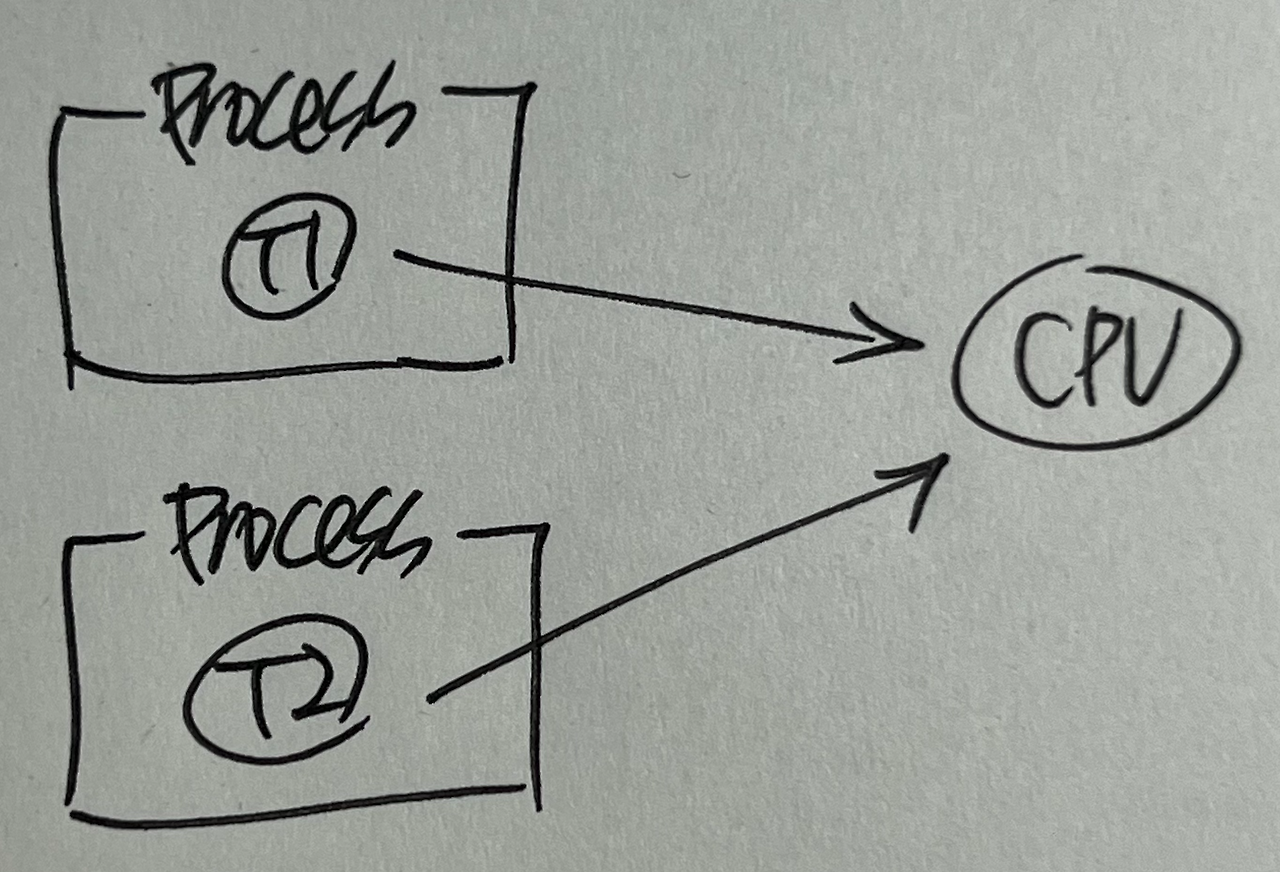 Process
T1
CPU
Process
T2